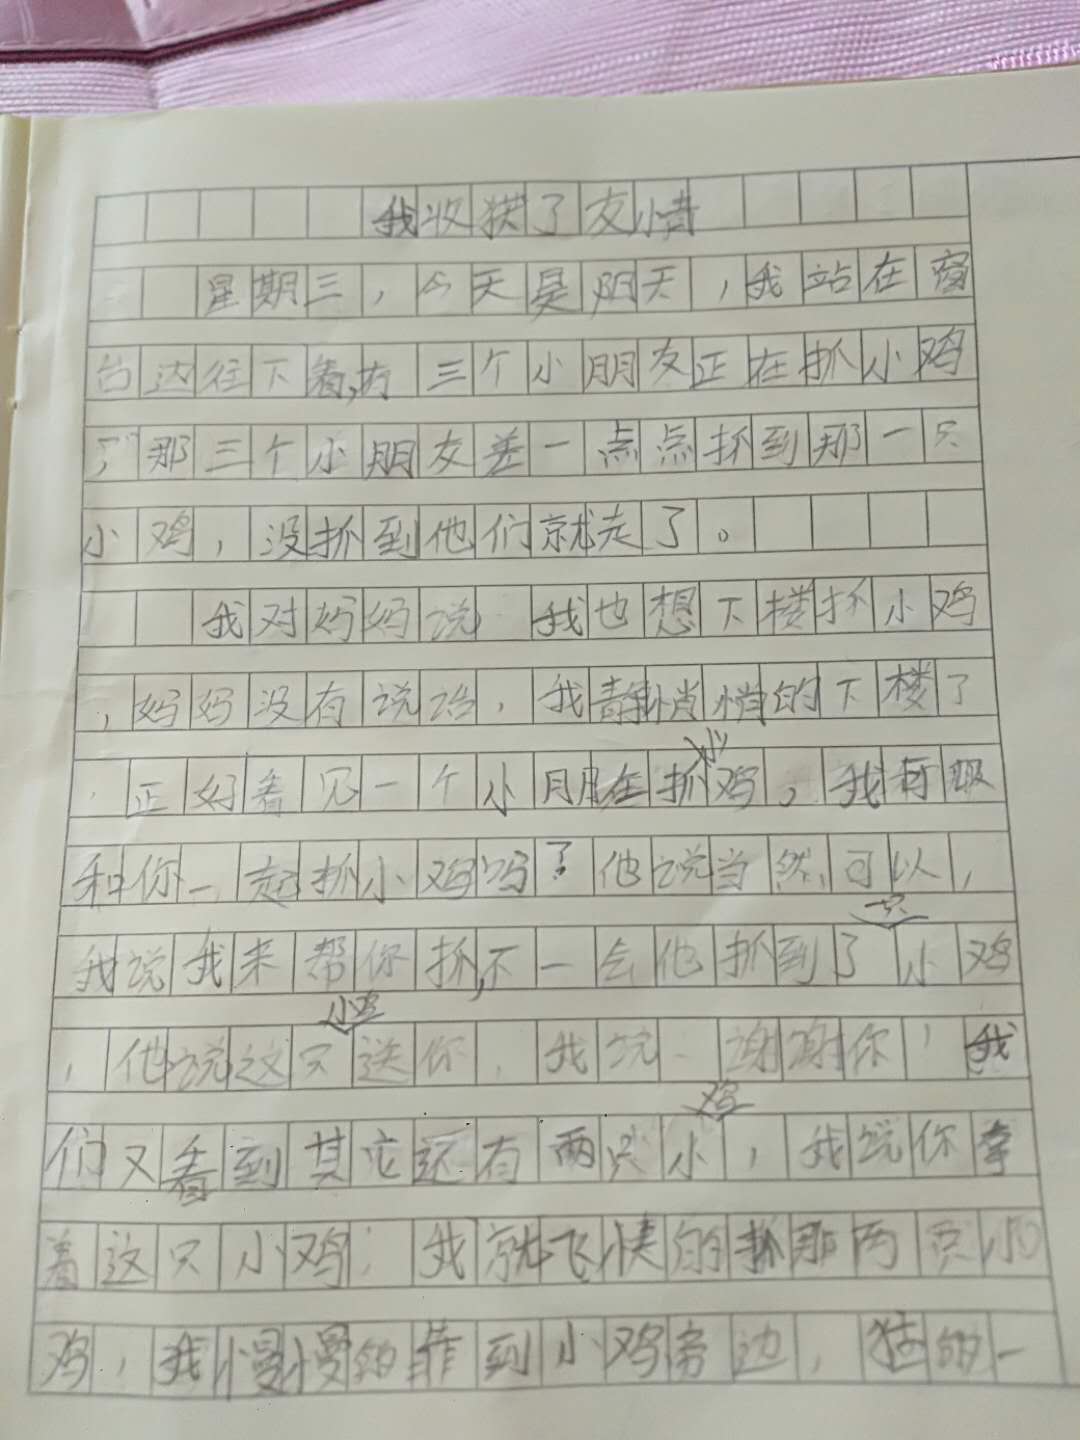 我收获了友情
星期三，今天是阴天，我站在窗
台边往下看，有三个小朋友正在抓小鸡
，那三个小朋友差一点点抓到那一只
小鸡，没抓到他们就走了。
我对妈妈说 我也想下楼抓小鸡
，妈妈没有说话，我静悄悄的下楼了
正好看见一个小朋在抓小鸡，我可
和你一起抓小鸡吗？他说当然可以，
我说我来帮你抓，不一会他抓到了一只小鸡
，他说这只小鸡送你，我说 谢谢你，我
们又看到其它还有两只小鸡，我说你拿
着这只小鸡，我就飞快的抓那两只小
鸡，我慢慢的靠到小鸡旁边，猛的一